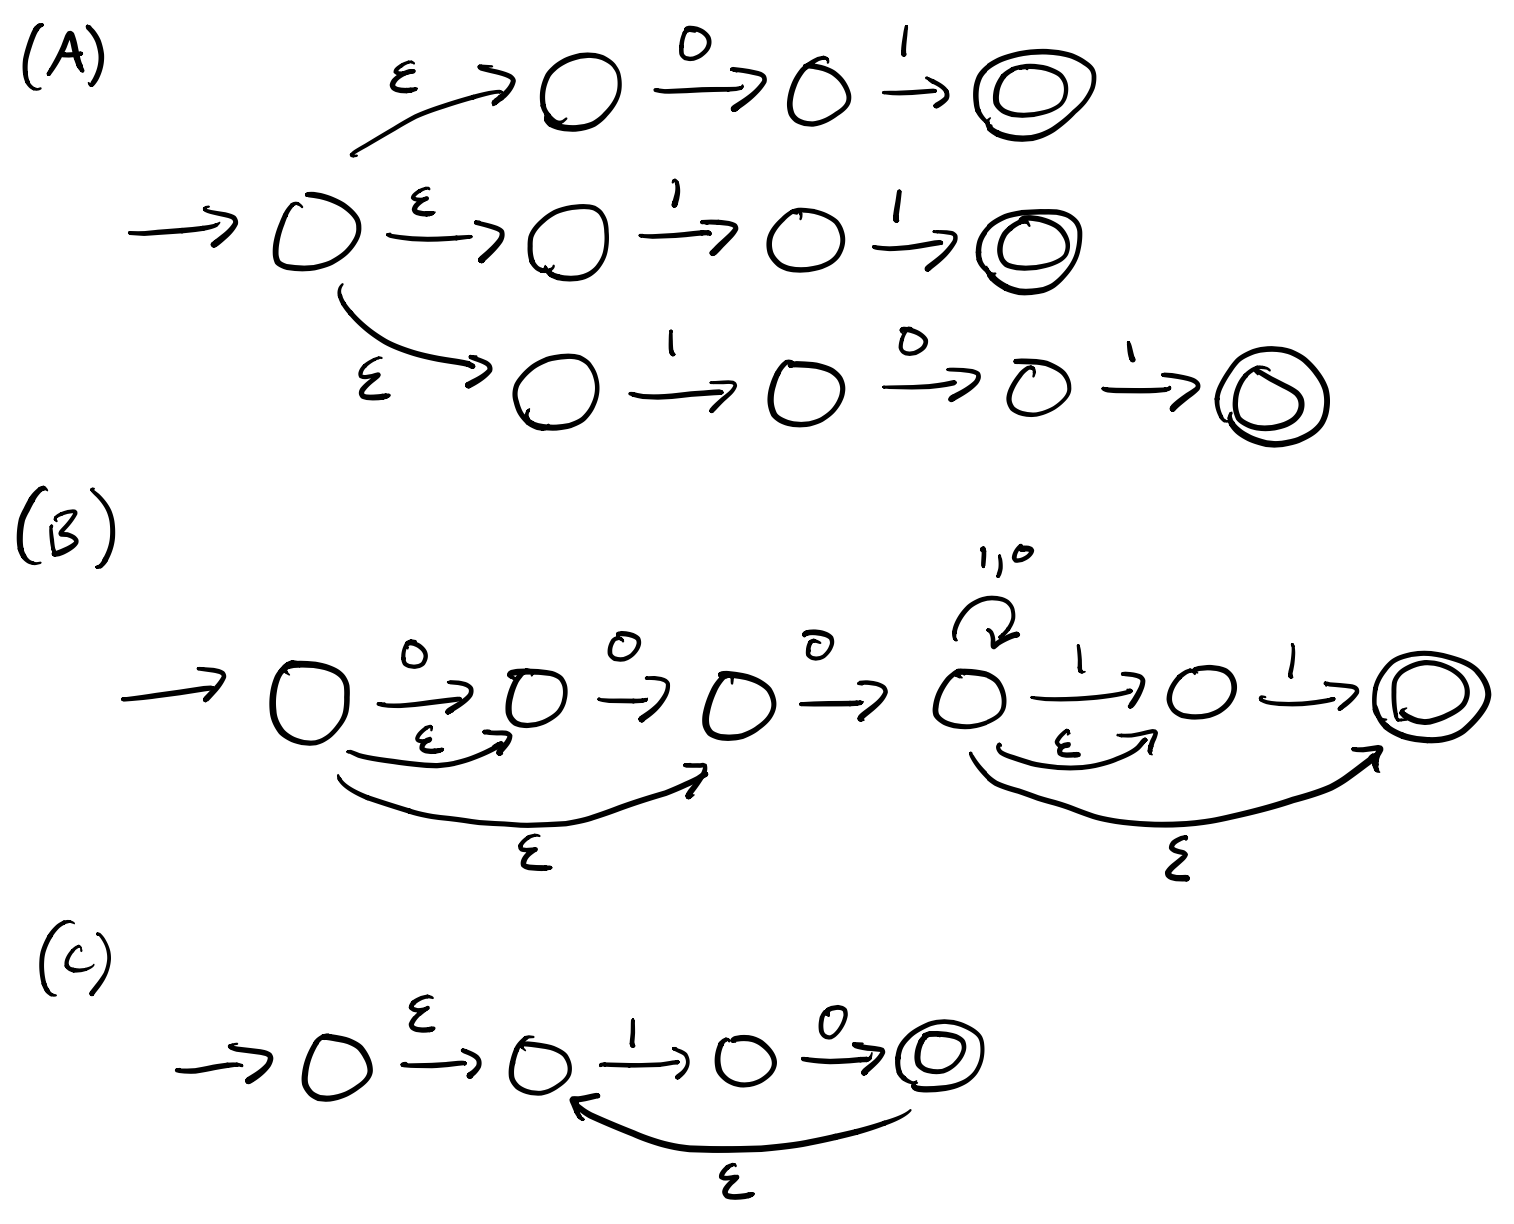 (A)
ε 0 1
ε 1 1
ε 1 0 1
(B)
1,0
0 0 0 1 1
ε ε
ε ε
(C)
ε 1 0
ε